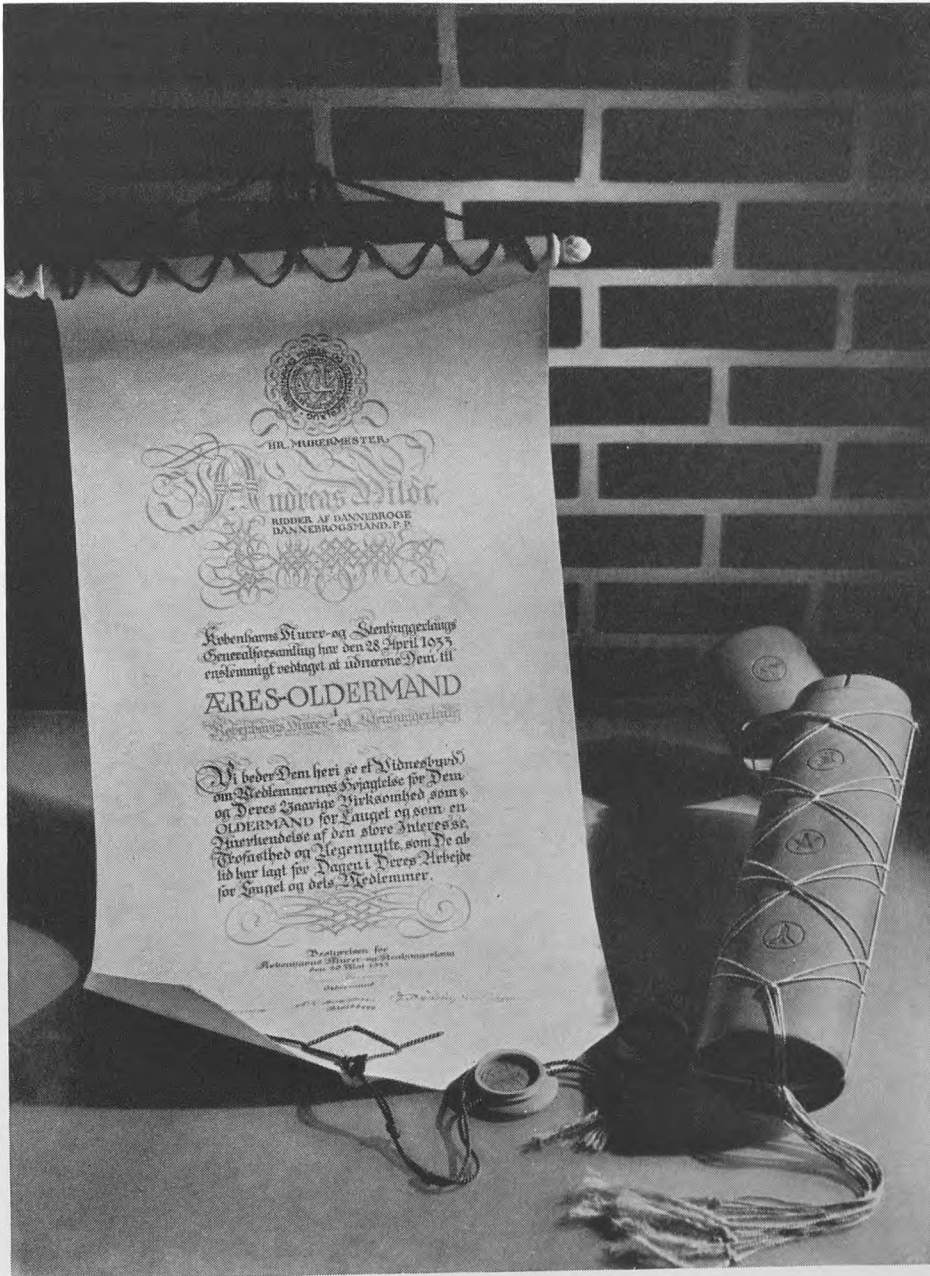 HR. MURERMESTER,
Andreas
RIDDER AF DANNEBROGE
DANNEBROGSMAND. P. P.
Københavns Murer- og Stenhuggerlaugs
Generalforsamling har den 28 April 1933
enstemmigt vedtaget at udnævne Dem til
ÆRES-OLDERMAND
i
Københavns Murer- og Stenhuggerlaug
Vi beder Dem heri se et Vidnesbyrd
om Medlemmernes Højagtelse for Dem
og Deres Virksomhed som
OLDERMAND for Lauget og som en
Anerkendelse af den store Interesse,
Trofasthed og Uegennytte, som De al-
tid har lagt for Dagen i Deres Arbejde
for Lauget og dets Medlemmer.
Bestyrelsen for
Københavns Murer- og Stenhuggerlaug
den Mai 1933
Oldermand